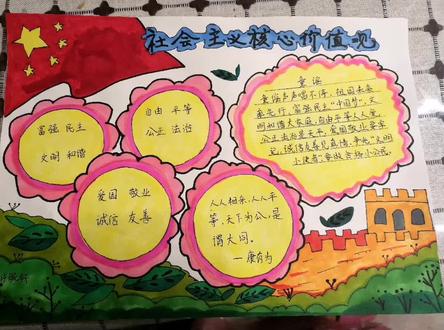 社会主义核心价值观
富强 民主
文明 和谐
自由 平等
公正 法治
爱国 敬业
诚信 友善
人人相亲,人人平
等,天下为公,是
谓大同。
—康有为
童谣
童谣声声唱不停,祖国未来
富强民主"中国梦",文
明和谐大家庭,自由平等人人爱,
公正法治是天平,爱国敬业
诚信友善见真情,争做"文明
小使者",